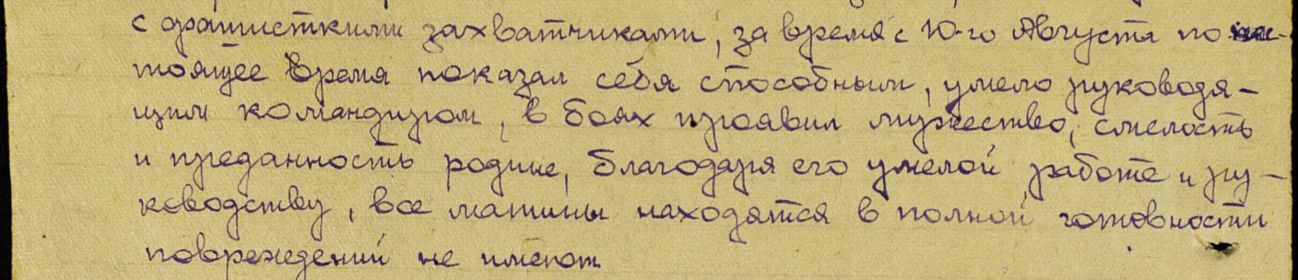 с фашисткими захватчиками, за время с 10-го Августа по нас-
тоящее время показал себя способным, умело руководя-
щим командиром, в боях проявил мужество, смелость
и преданность родине, благодаря его умелой работе и ру-
ководству, все машины находятся в полной готовности
повреждений не имеют